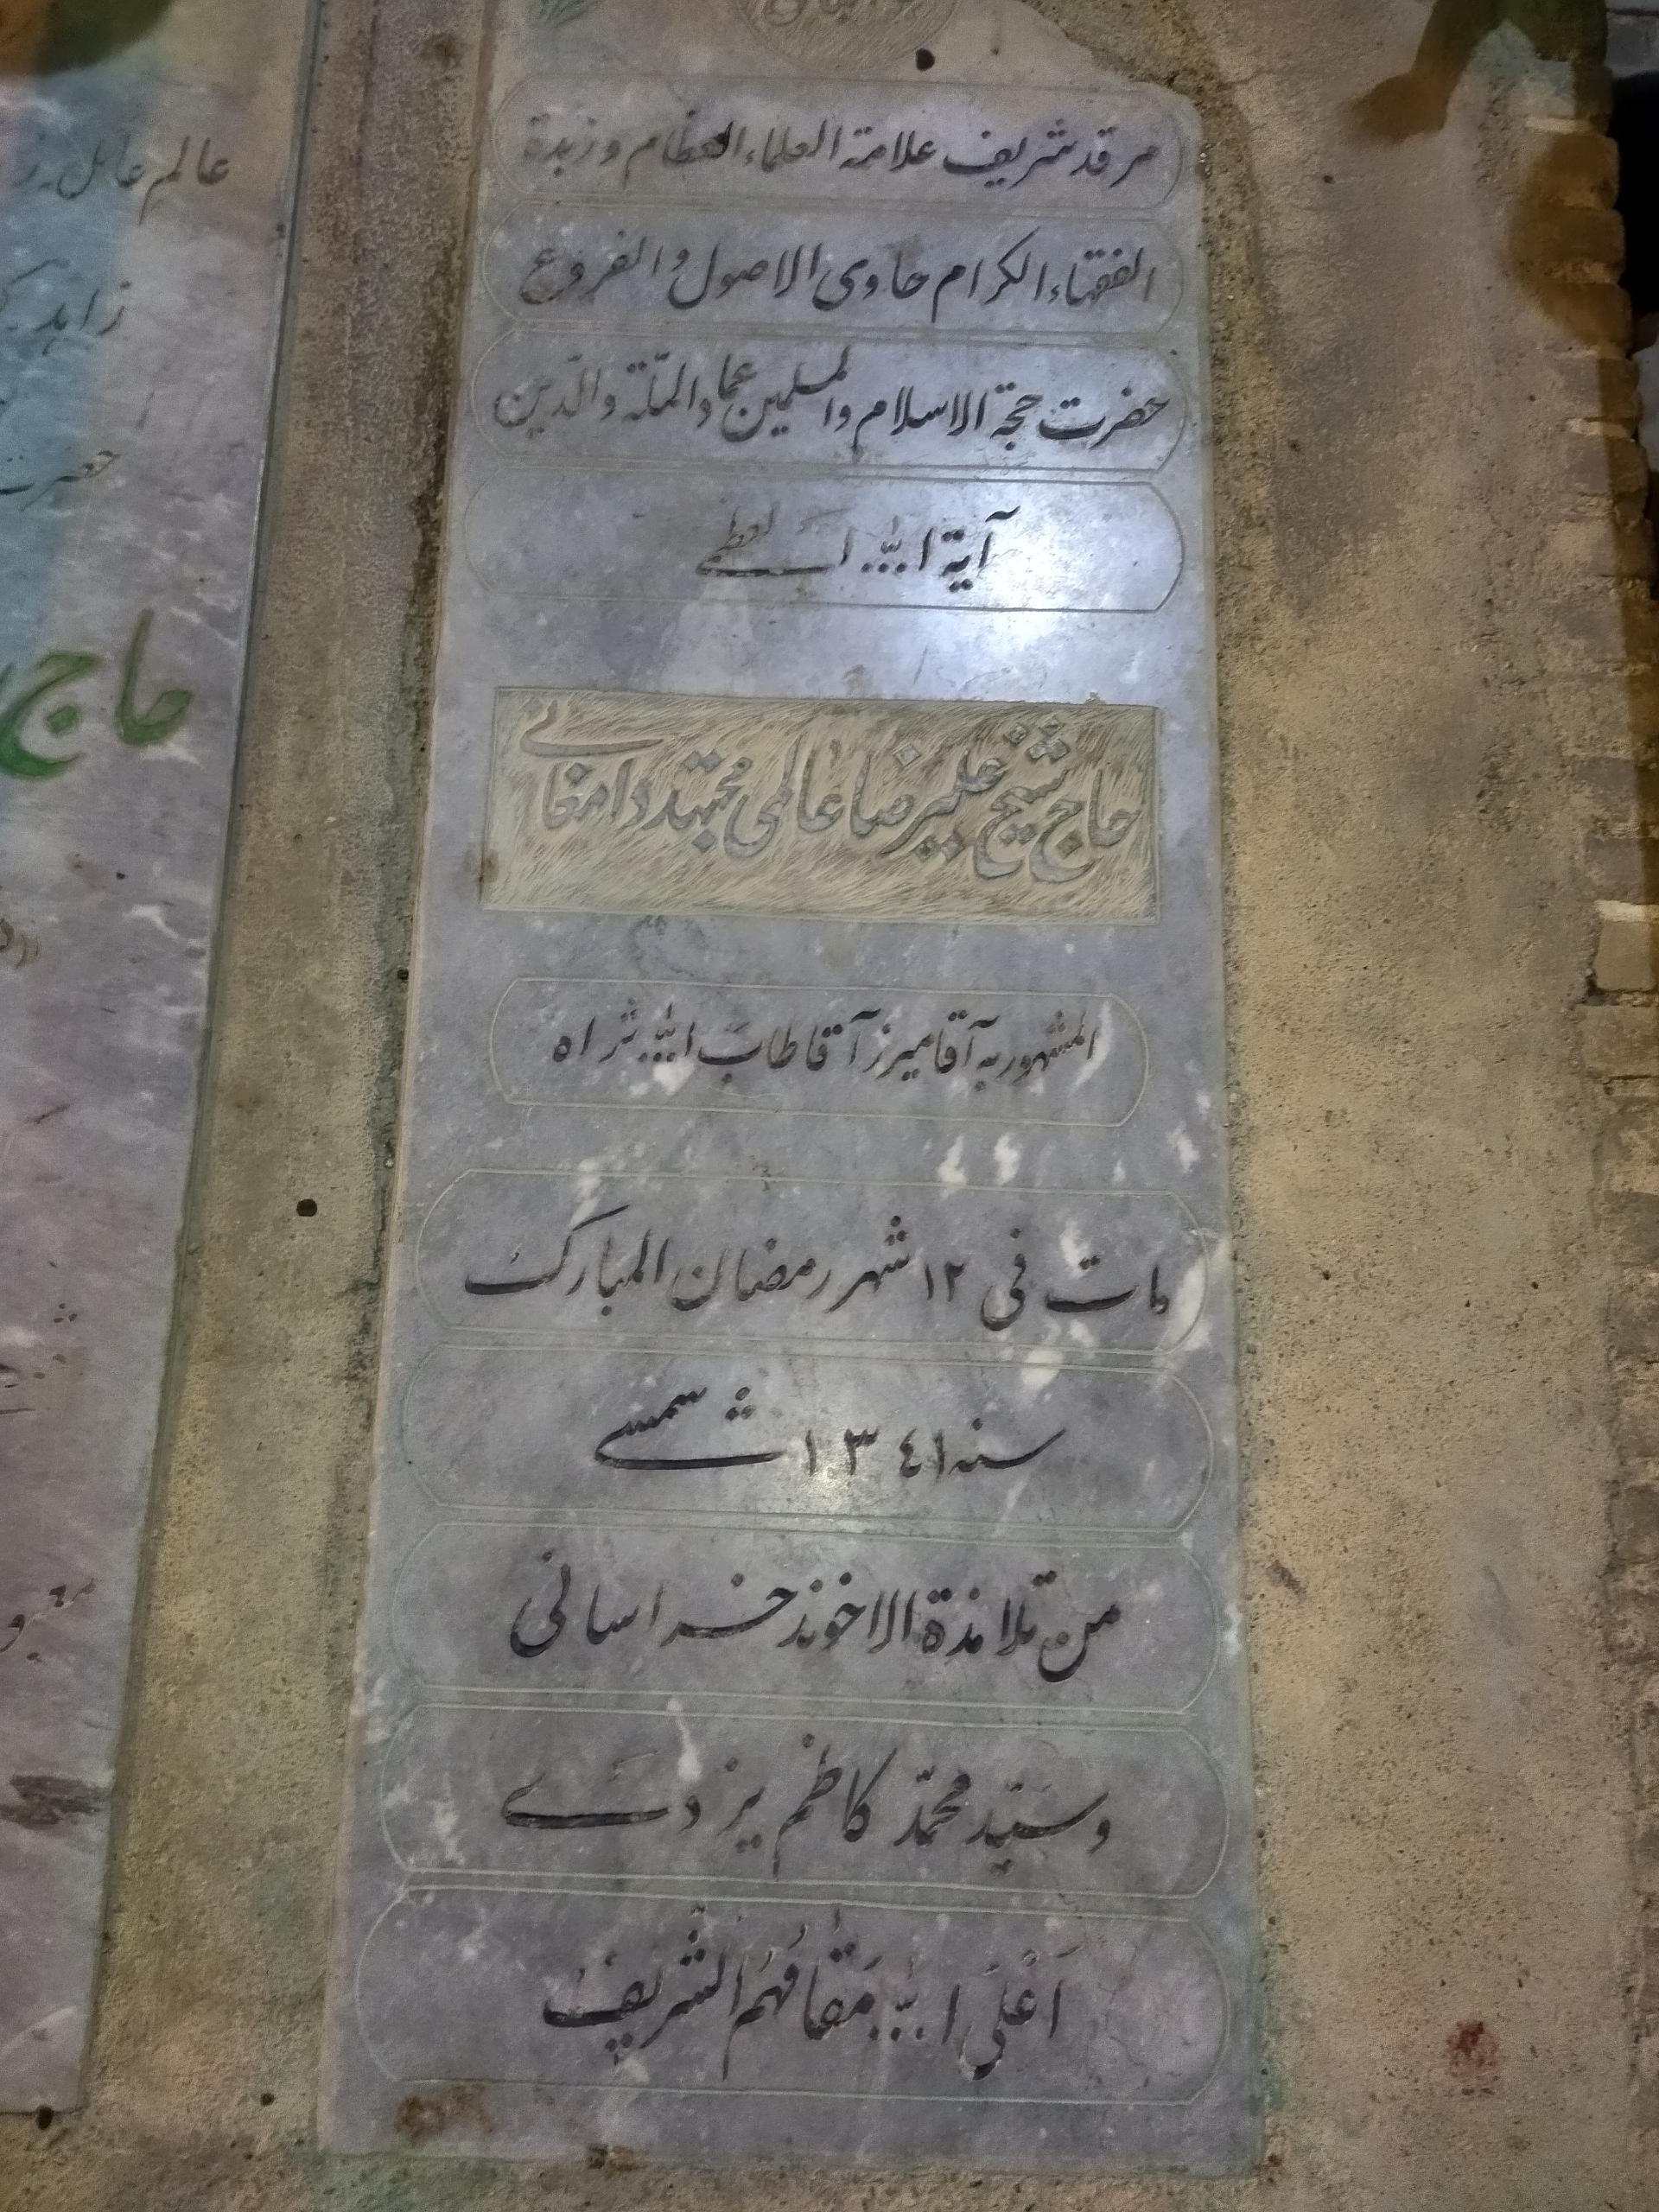 مرقد شریف علامة العلماء العظام و زبدة
الفقهاء الکرام حاوی الاصول و الفروع
حضرت حجة الاسلام والمسلمین عماد الملّة والدّین
آیة اللّه العظمی
حاج شیخ علیرضا عالمی مجتهد دامغانی
المشهور به آقا میرزا آقا طابَ اللّه ثراه
مات فی ۱۲ شهر رمضان المبارک
سنه ۱۳٤۱ شمسی
من تلامذة الاخوند خراسانی
و سیّد محمّد کاظم یزدی
اَعْلَی اللّه مَقامَهُم الشّریف
عالم عامل
زاهد
حضرت
حاج